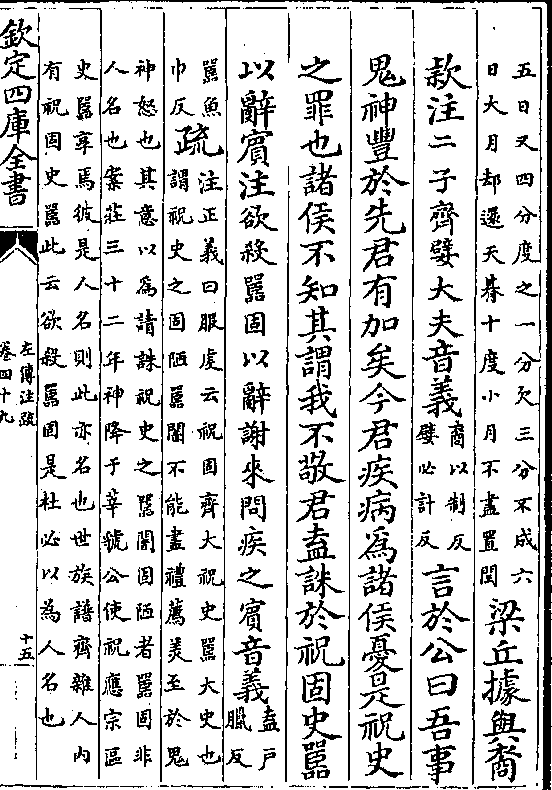 五日又四分度之一分欠三分不成六
日大月却還天暮十度小月不盡置閏
梁丘據與裔
款注二子齊嬖大夫音義
裔以制反
嬖必計反
言於公曰吾事
鬼神豐於先君有加矣今君疾病為諸侯憂是祝史
之罪也諸侯不知其謂我不敬君盍誅於祝固史嚚
以辭賓注欲殺嚚固以辭謝來問疾之賓音義
盍戶
臘反
嚚魚
巾反
疏
注正義曰服䖍云祝固齊大祝史嚚大史也
謂祝史之固陋嚚闇不能盡禮薦美至於鬼
神怒也其意以為請誅祝史之嚚闇固陋者嚚固非
人名也案莊三十二年神降于莘虢公使祝應宗區
史嚚享焉彼是人名則此亦名也世族譜齊雜人内
有祝固史嚚此云欲殺嚚固是杜必以為人名也
欽定四庫全書
左傳注疏
卷四十九
十五